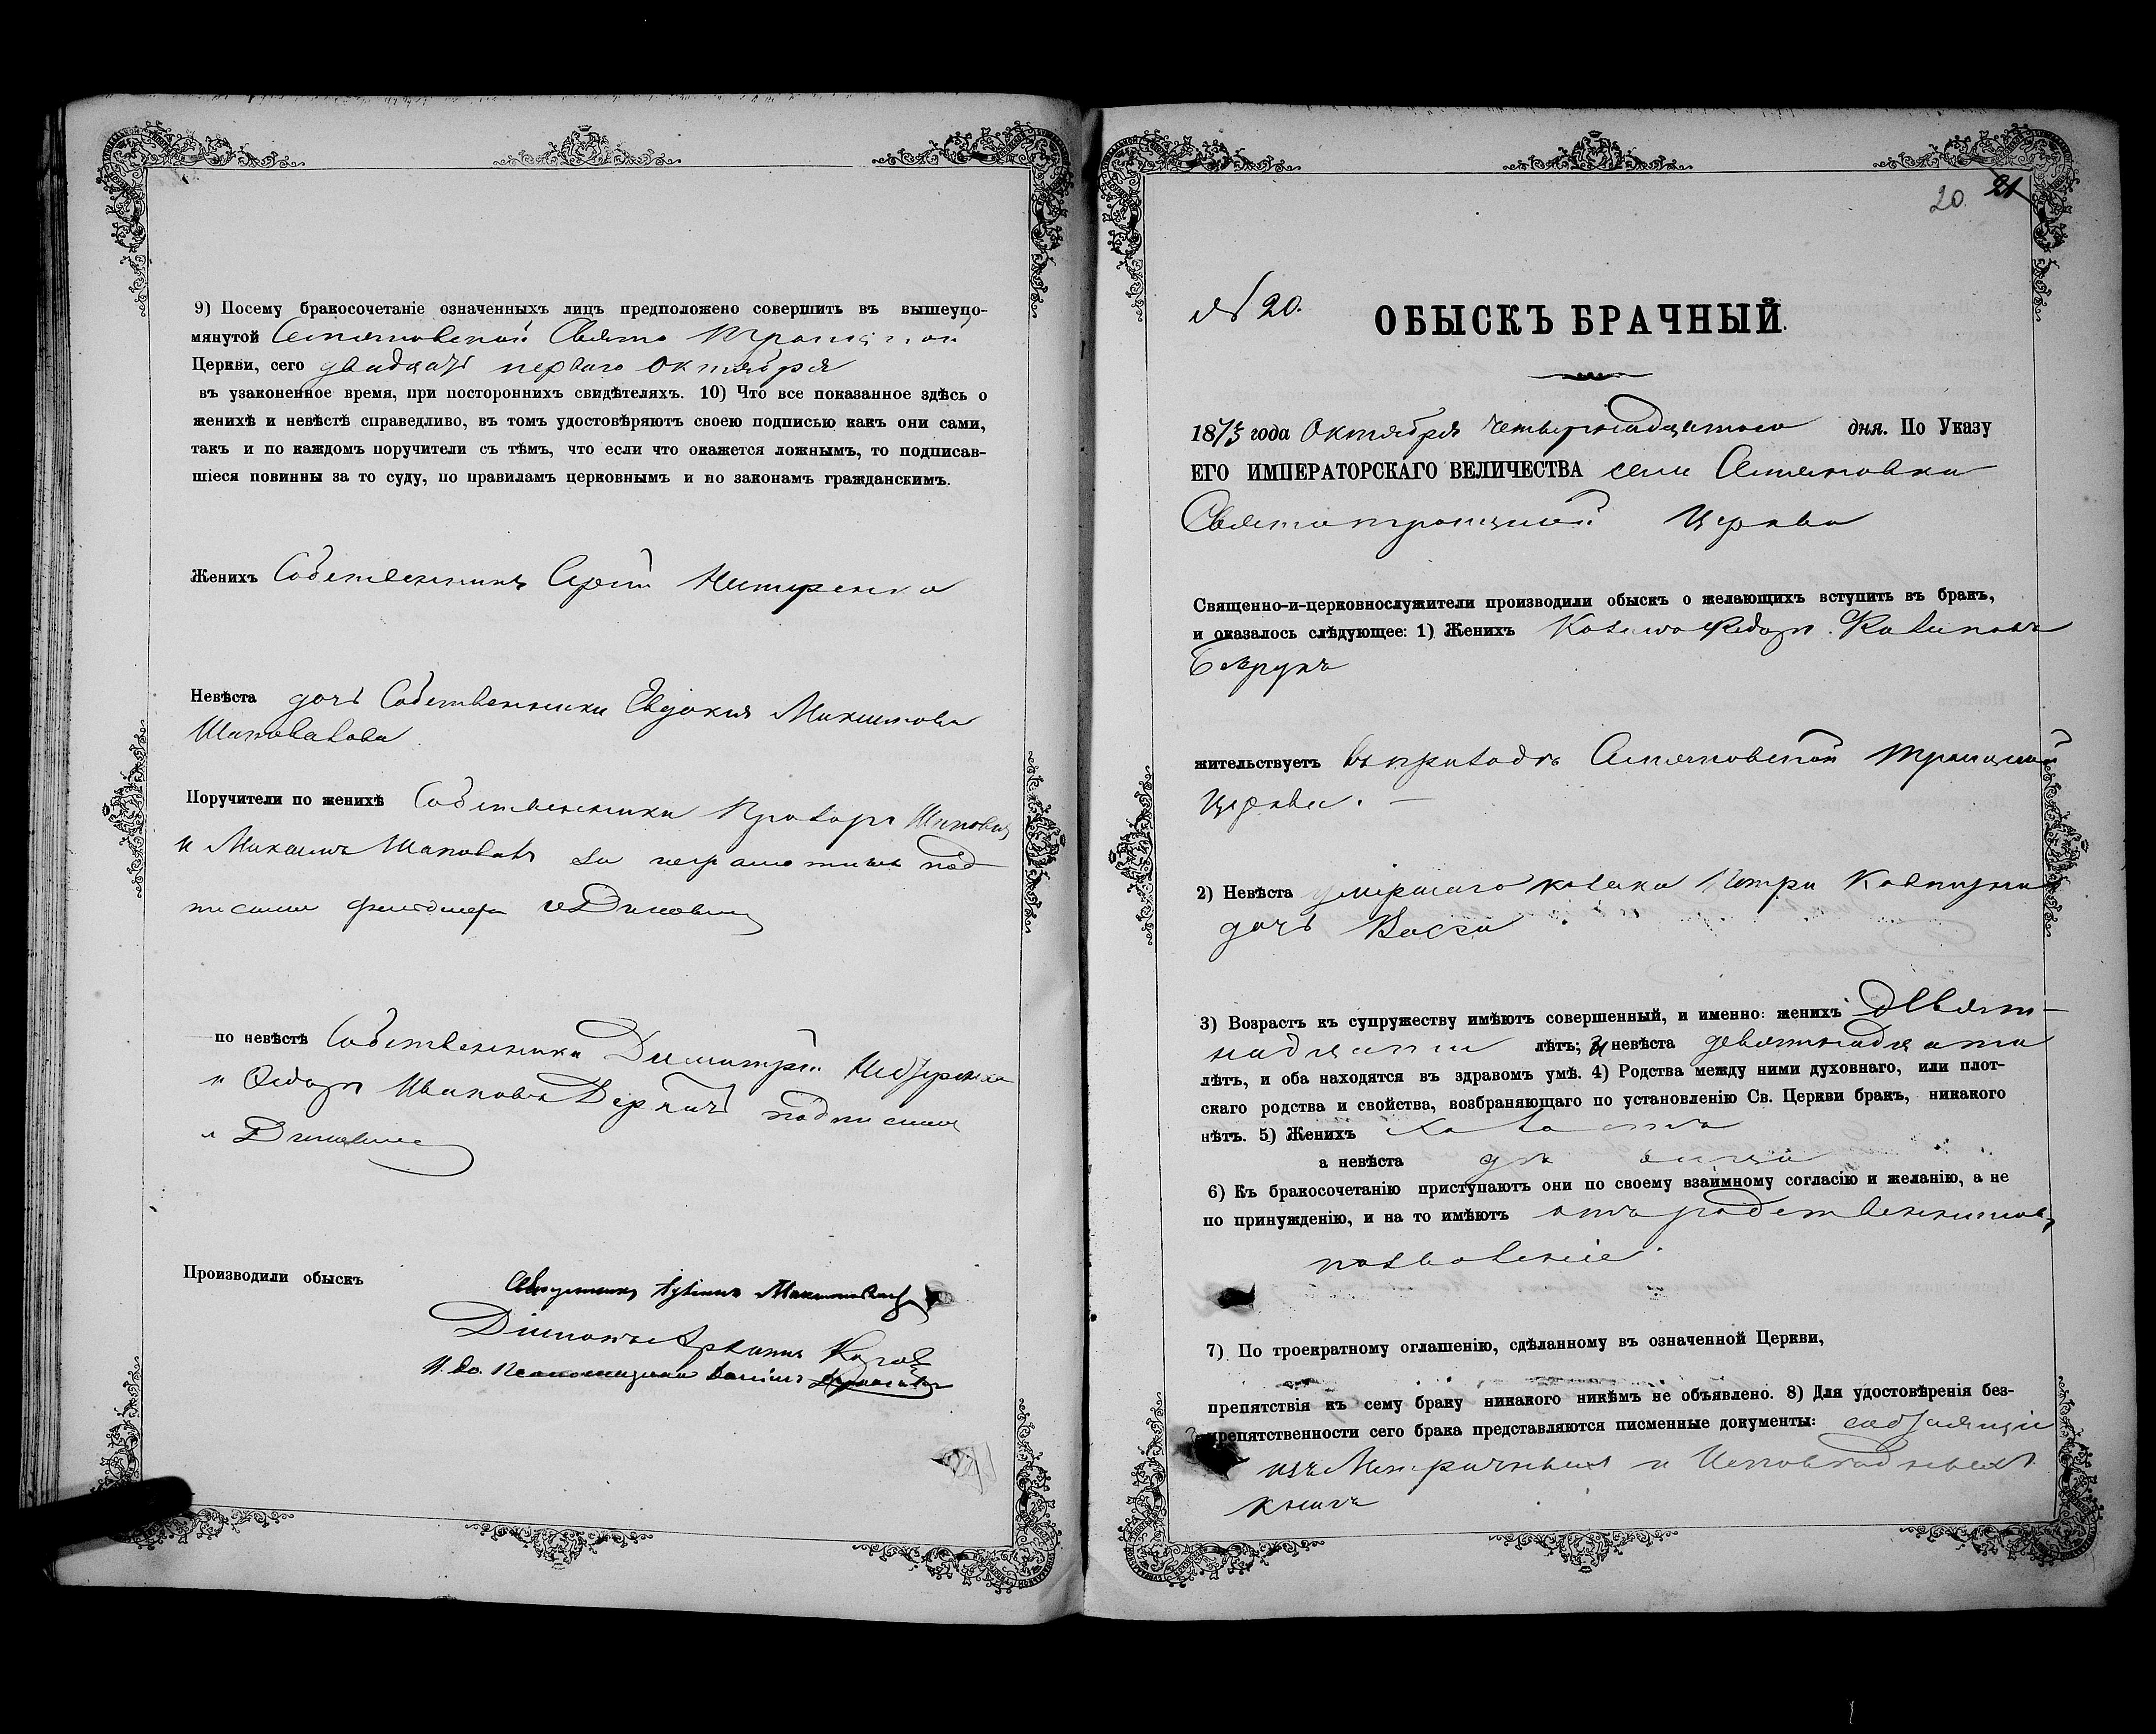 9) Посему бракосочетаніе означенныхъ лицъ предположено совершить въ вышеупо-
мянутой Свято Троицкой
Церкви, сего двадцать перваго Октября
въ узаконенное время, при постороннихъ свидѣтеляхъ. 10) Что все показанное здѣсь о
женихѣ и невѣстѣ справедливо, въ томъ удостовѣряютъ своею подписью какъ они сами,
такъ и по каждомъ поручители съ тѣмъ, что если что окажется ложнымъ, то подписав-
шіеся повинны за то суду, по правиламъ церковнымъ и по законамъ гражданскимъ.
Женихъ Собственникъ Сергій Нестеренко
Невѣста дочь Собственника Евдокія Максимова
Шаповалова
Поручители по женихѣ Собственники Прохоръ
и Шаповалъ за неграмотныхъ под
писался
по невѣстѣ Собственники Димитрій
и Федоръ Ивановъ подписался
Производили обыскъ
Священникъ
Діаконъ
И. до. Псаломщика
20 21
№ 20.
ОБЫСКЪ БРАЧНЫЙ.
1873 года Октября четырнадцатаго дня. По Указу
ЕГО ИМПЕРАТОРСКАГО ВЕЛИЧЕСТВА села
Святотроицкой Церкви
Священно-и-церковнослужители производили обыскъ о желающихъ вступить въ бракъ,
и оказалось слѣдующее: 1) Женихъ Козакъ Федоръ
жительствуетъ въ приходѣ Троицкой
Церкви.
2) Невѣста умершаго козака Петра
дочь
3) Возрастъ къ супружеству имѣютъ совершенный, и именно: женихъ девят-
надцати лѣтъ; а невѣста девятнадцати
лѣтъ, и оба находятся въ здравомъ умѣ. 4) Родства между ними духовнаго, или плот-
скаго родства и свойства, возбраняющаго по установленію Св. Церкви бракъ, никакого
нѣтъ. 5) Женихъ холостъ
а невѣста дѣвица
6) Къ бракосочетанію приступаютъ они по своему взаимному согласію и желанію, а не
по принужденію, и на то имѣютъ отъ родственниковъ
позволеніе.
7) По троекратному оглашенію, сдѣланному въ означенной Церкви,
препятствія къ сему браку никакого никѣмъ не объявлено. 8) Для удостовѣренія без-
препятственности сего брака представляются писменные документы:
изъ Метричныхъ и Исповѣдныхъ
книгъ